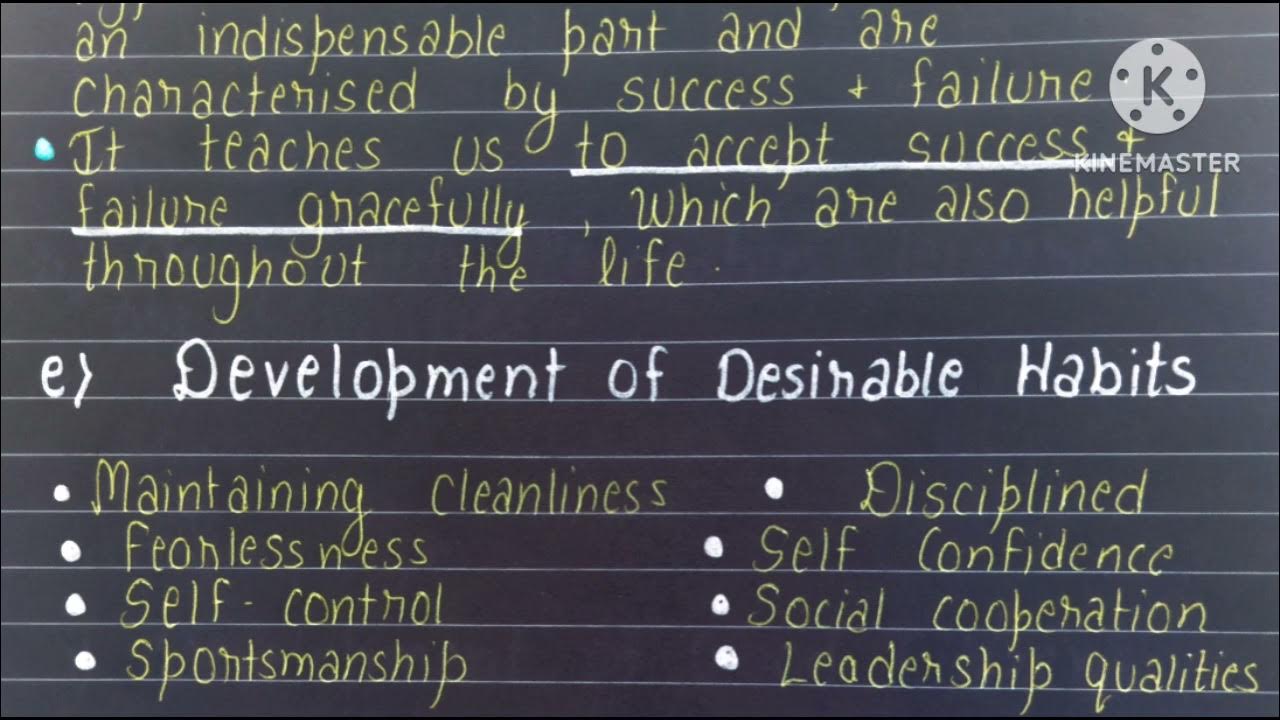 an indispensable part and are
characterised by success + failure
• It teaches us to accept success +
failure gracefully, which are also helpful
throughout the life.
e) Development of Desirable Habits
• Maintaining cleanliness • Disciplined
• Fearlessness • Self Confidence
• Self-control • Social cooperation
• Sportsmanship • Leadership qualities
K
KINEMASTER